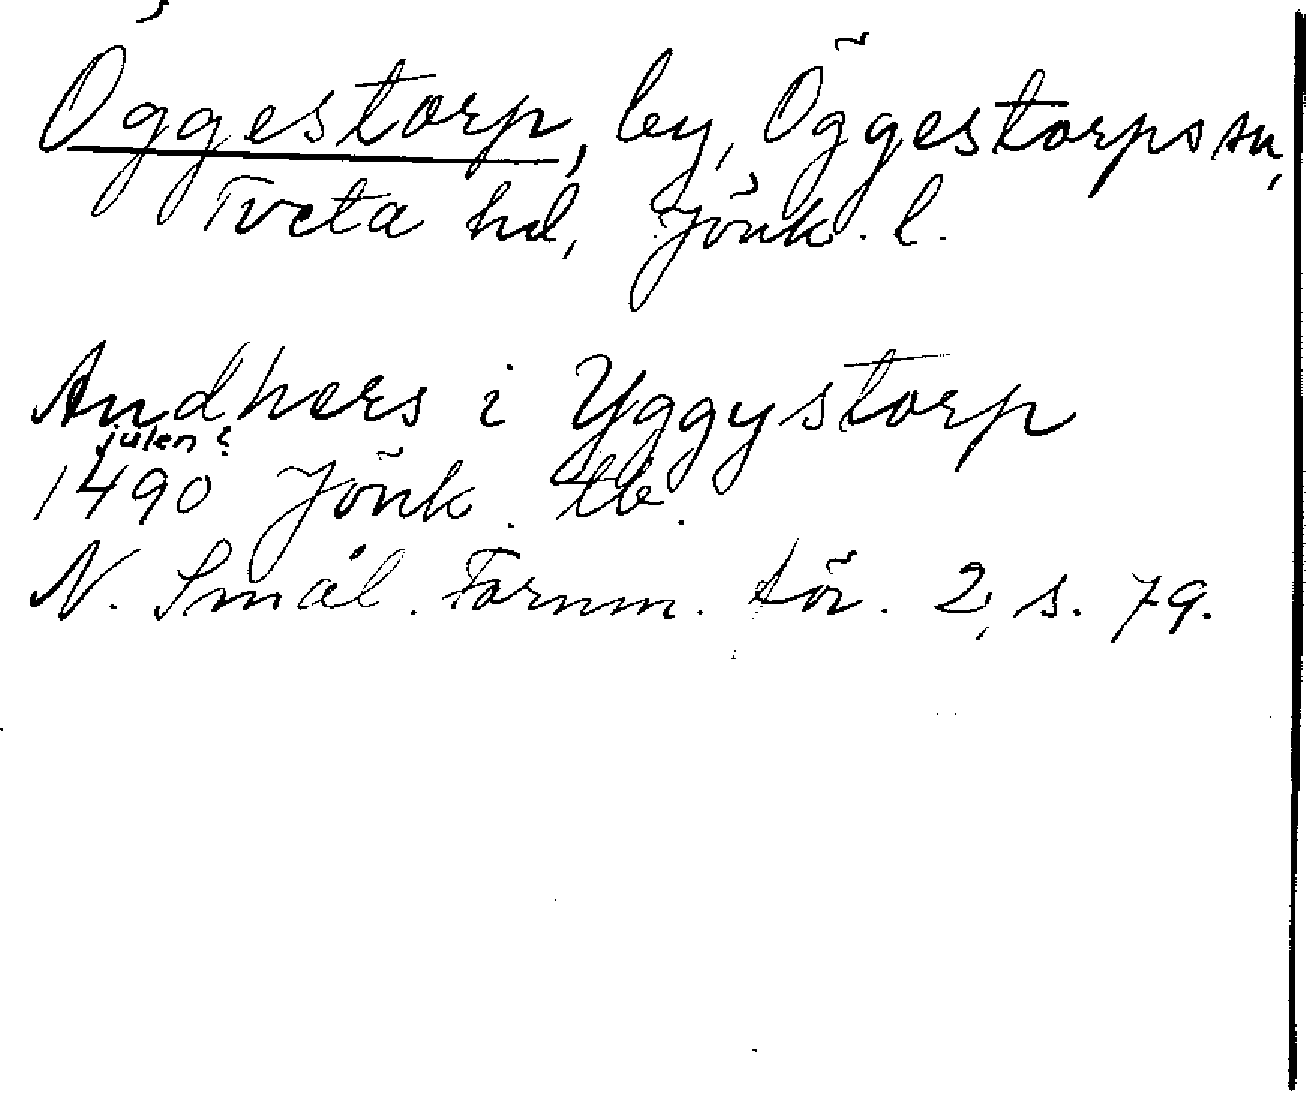 Öggestorp, by, Öggestorps sn,
Tveta hd, Jönk. l.
Andhers i Yggystorp
julen?
1490 Jönk. tb.
N. Smål. Fornm. för. 2, s. 79.